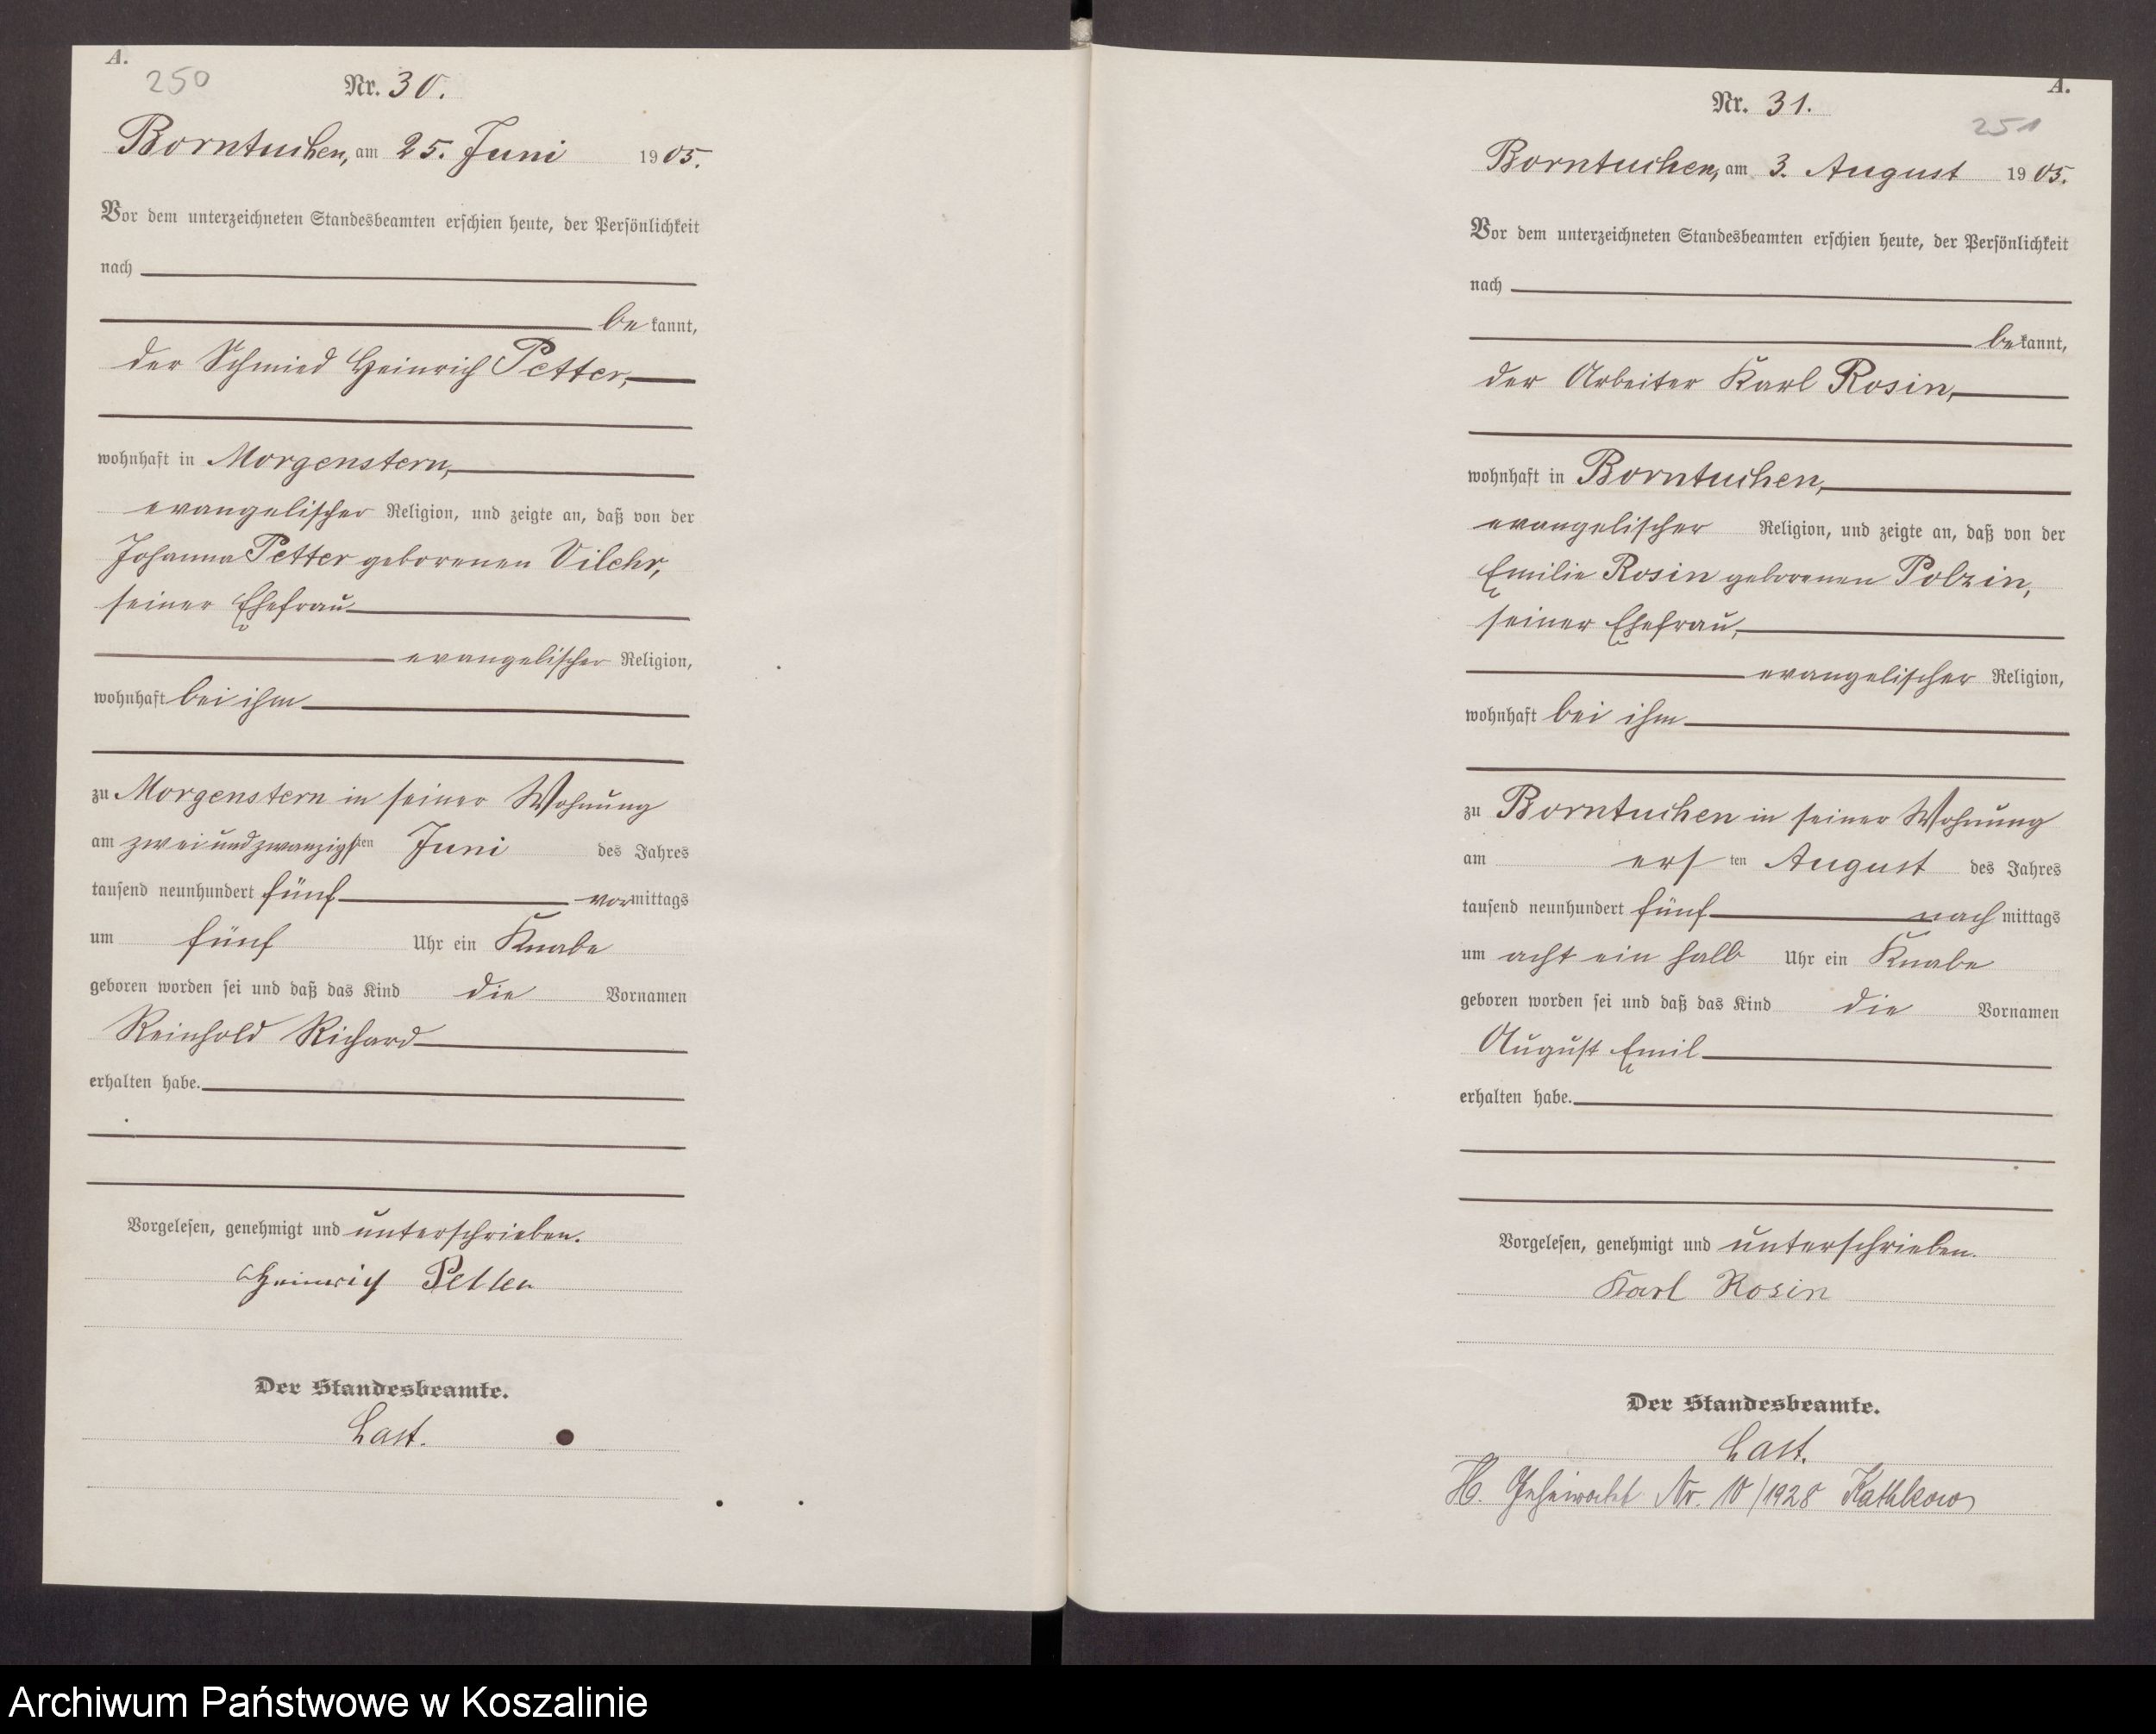 A.
250
Nr. 30.
Borntuchen, am 25. Juni 1905.
Vor dem unterzeichneten Standesbeamten erschien heute, der Persönlichkeit
nach
bekannt,
der Schmied Heinrich Petter,
wohnhaft in Morgenstern,
evangelischer Religion, und zeigte an, daß von der
Johanna Petter geborenen Vilehr,
seiner Ehefrau
evangelischer Religion,
wohnhaft bei ihm
zu Morgenstern in seiner Wohnung
am zweiundzwanzigsten Juni des Jahres
tausend neunhundert fünf vormittags
um fünf Uhr ein Knabe
geboren worden sei und daß das Kind die Vornamen
Reinhold Richard
erhalten habe.
Vorgelesen, genehmigt und unterschrieben.
Heinrich Petter
Der Standesbeamte.
Last.
A.
Nr. 31.
251
Borntuchen, am 3. August 1905.
Vor dem unterzeichneten Standesbeamten erschien heute, der Persönlichkeit
nach
bekannt,
der Arbeiter Karl Rosin,
wohnhaft in Borntuchen,
evangelischer Religion, und zeigte an, daß von der
Emilie Rosin geborenen Polzin,
seiner Ehefrau,
evangelischer Religion,
wohnhaft bei ihm
zu Borntuchen in seiner Wohnung
am ersten August des Jahres
tausend neunhundert fünf nachmittags
um acht ein halb Uhr ein Knabe
geboren worden sei und daß das Kind die Vornamen
August Emil
erhalten habe.
Vorgelesen, genehmigt und unterschrieben.
Karl Rosin
Der Standesbeamte.
Last.
H. Geheiratet Nr. 10/1928 Kathkow
Archiwum Państwowe w Koszalinie